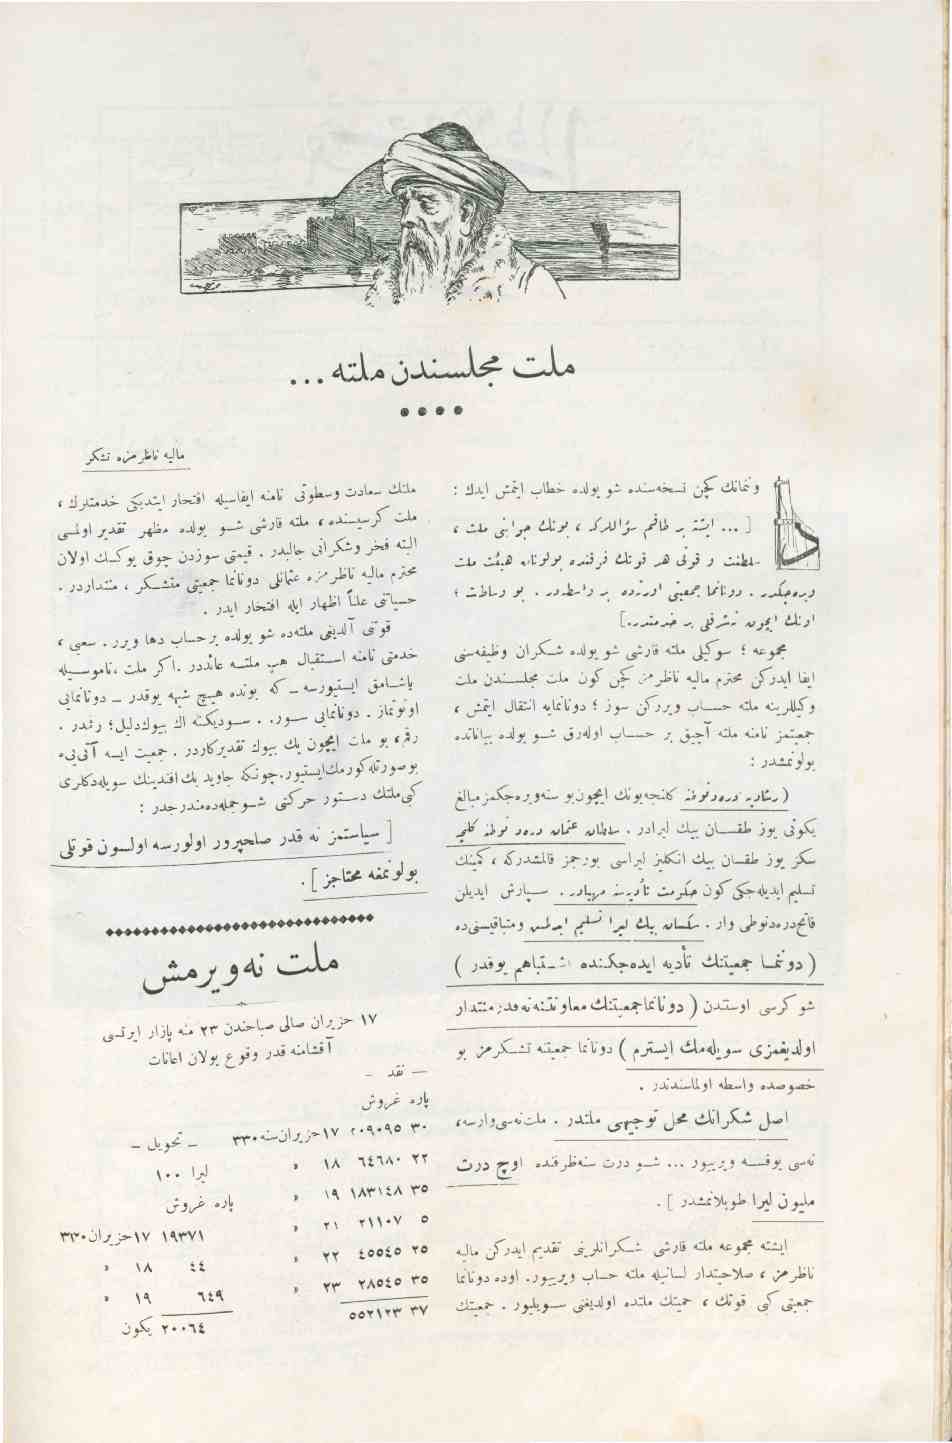 ملت مجلسندن ملته ...
دونمانك كچن نسخه‌سنده شو یولده خطاب ایتمش ایدك :
[ ... ایشته بر طاقم سؤاللركه ، بونك جوابنی ملت ،
سلطنت و قوتی هر قوتك فوقنده بولونان هیئت ملت
ویره‌جكدر . دونانما جمعیتی اورتده بر واسطه‌در . بو وساطت ؛
اونك ایچون شرفلی بر خدمتدر .]
مجموعه ؛ سوكیلی ملته قارشی شو یولده شكران وظیفه‌سنی
ایفا ایدركن محترم مالیه ناظرمز كچن كون ملت مجلسندن ملت
وكیللرینه ملته حساب ویرركن سوز ؛ دونانمایه انتقال ایتمش ،
جمعیتمز نامنه ملته آچیق بر حساب اوله‌رق شو یولده بیاناتده
بولونمشدر :
( رشادیه دره‌دنوطنه كلنجه بونك ایچون بو سنه ویره‌جكمز مبالغ
یكونی یوز طقسان بیك لیرادر . سلطان عثمان دره‌د نوطنه كلنجه
سكز یوز طقسان بیك انكلیز لیراسی بورجمز قالمشدركه ، كمینك
تسلیم ایدیله‌جكی كون حكومت تأدیه‌سنه مهیادر . سپارش ایدیلن
فاتح دره‌دنوطی وار . سكسان بیك لیرا تسلیم ایدلمش ومتباقیسنی ده
( دوننما جمعیتنك تأدیه ایده‌جكنده اشتباهم یوقدر )
شو كرسی اوستدن ( دونانما جمعیتنك معاونتنه نه‌قدر منتدار
اولدیغمزی سویله‌مك ایسترم ) دونانما جمعیتنه تشكرمز بو
خصوصده واسطه اولماسندندر .
اصل شكرانك محل توجیهی ملتدر . ملت نه‌سی وارسه ،
نه‌سی یوقسه ویرییور ... شو درت سنه ظرفنده اوچ درت
ملیون لیرا طوپلانمشدر ] .
ایشته مجموعه ملته قارشی شكرانلرینی تقدیم ایدركن مالیه
ناظرمز ، صلاحیتدار لسانیله ملته حساب ویرییور . اوده دونانما
جمعیتی كبی قوتك ، حمیتك ملتده اولدیغنی سویلیور . جمعیتك
مالیه ناظرمزه تشكر
ملتك سعادت وسطوتی نامنه ایفاسیله افتخار ایتدیكی خدمتلرك ،
ملت كرسیسنده ، ملته قارشی شو یولده مظهر تقدیر اولمسی
البته فخر وشكرانی جالبدر . قیمتی سوزدن چوق یوكسك اولان
محترم مالیه ناظرمزه عثمانلی دونانما جمعیتی متشكر ، منتداردر .
حسیاتنی علناً اظهار ایله افتخار ایدر .
قوتنی آلدیغی ملته‌ده شو یولده برحساب دها ویرر . سعیی ،
خدمتی نامنه استقبال هپ ملته عائددر . اكر ملت ، ناموسیله
یاشامق ایستیورسه ـ كه بونده هیچ شبهه یوقدر ـ دونانمایی
اونوتماز . دونانمایی سور . سودیكنه اك بیوك دلیل ؛ رقمدر .
رقم ، بو ملت ایچون پك بیوك تقدیركاردر . جمعیت ایسه آتی‌یی‌ء
بو صورتله كورمك ایستیور . چونكه جاوید بك افندینك سویله‌دكلری
كبی ملتك دستور حركتی شو جمله‌ده مندرجدر :
[ سیاستمز نه قدر صلحپرور اولورسه اولسون قوتلی
بولونمغه محتاجز ] .
ملت نه ویرمش
١٧ حزیران صالی صباحندن ٢٣ منه پازار ایرتسی
آقشامنه قدر وقوع بولان اعانات
— نقد —
پاره غروش
٣٠ ٢٠٩٠٩٥ ١٧ حزیران سنه ٣٣٠
٢٢ ٦٤٦٨٠ ١٨ »
٣٥ ١٨٣١٤٨ ١٩ »
٥ ٢١١٠٧ ٢١ »
٢٥ ٤٥٥٤٥ ٢٢ »
٣٥ ٢٨٥٤٥ ٢٣ »
٣٧ ٥٥٢١٢٣
— تحویل —
لیرا ١٠٠
پاره غروش
١٩٣٧١ ١٧ حزیران ٣٣٠
٤٤ ١٨ »
٦٤٩ ١٩ »
٢٠٠٦٤ یكون